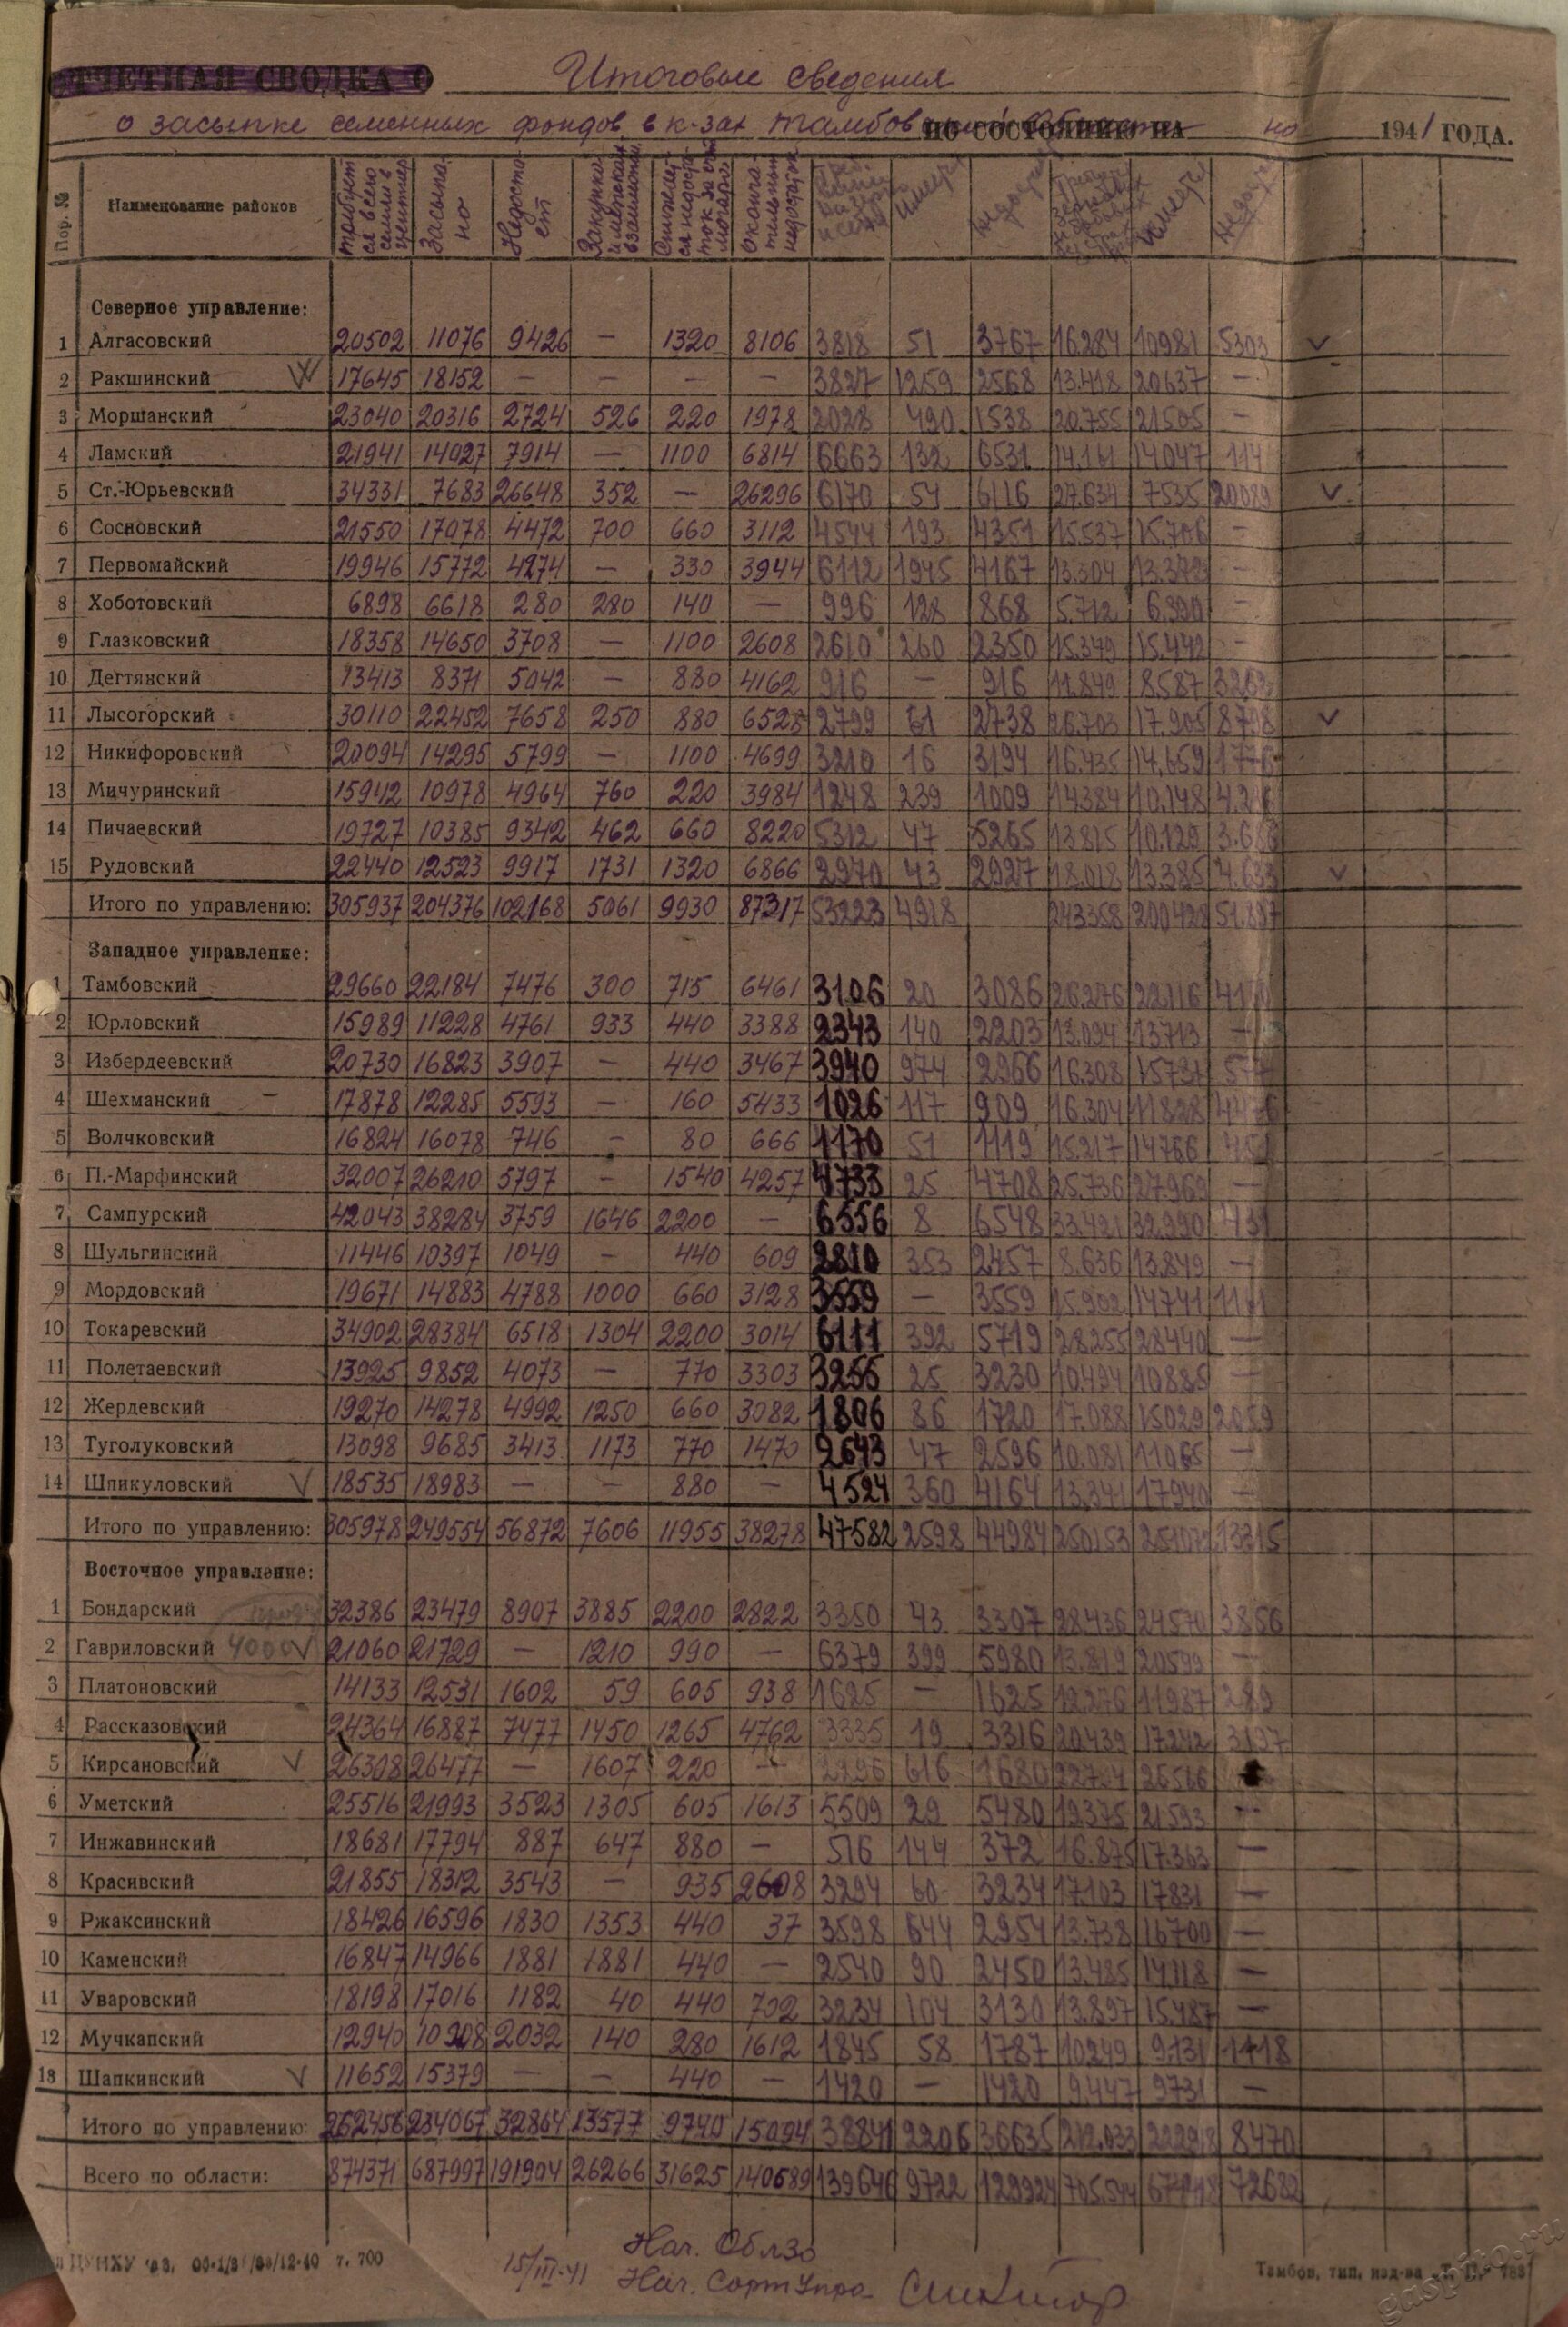 Итоговые сведения
о засыпке семенных фондов в к-зах Тамбов ПО СОСТОЯНИЮ НА 1941 ГОДА.
Пор. № Наименование районов Требует ся всего семян в центнер Засыпа но Недоста ет Закупка и межколх взаимооб. Окончательный недостаток Имеется
Северное управление:
1 Алгасовский 20502 11076 9426 — 1320 8106 3818 51 3767 16.284 10981 5303
2 Ракшинский 17645 18152 — — — — 3827 1259 2568 13.418 20637 —
3 Моршанский 23040 20316 2724 526 220 1978 2028 490 1538 20.755 21505 —
4 Ламский 21941 14027 7914 — 1100 6814 6663 132 6531 14.161 14047 114
5 Ст.-Юрьевский 34331 7683 26648 352 — 26296 6170 54 6116 27.634 7535 20089
6 Сосновский 21550 17078 4472 700 660 3112 4544 193 4351 15.537 15.706 —
7 Первомайский 19946 15772 4274 — 330 3944 6112 1945 4167 13.304 13.372 —
8 Хоботовский 6898 6618 280 280 140 — 996 128 868 5.712 6.390 —
9 Глазковский 18358 14650 3708 — 1100 2608 2610 260 2350 15.349 15.442 —
10 Дегтянский 13413 8371 5042 — 880 4162 916 — 916 11.849 8.587 3262
11 Лысогорский 30110 22452 7658 250 880 6528 2799 61 2738 26.703 17.905 8798
12 Никифоровский 20094 14295 5799 — 1100 4699 3210 16 3194 16.435 14.659 1776
13 Мичуринский 15942 10978 4964 760 220 3984 1248 239 1009 14384 10.148 4.236
14 Пичаевский 19727 10385 9342 462 660 8220 5312 47 5265 13815 10.129 3.686
15 Рудовский 22440 12523 9917 1731 1320 6866 2970 43 2927 18.018 13.385 4.633
Итого по управлению: 305937 204376 102168 5061 9930 87317 53223 4918 243358 200428 51.887
Западное управление:
1 Тамбовский 29660 22184 7476 300 715 6461 3106 20 3086 26.276 22.116
2 Юрловский 15989 11228 4761 933 440 3388 2343 140 2203 13.094 13713 —
3 Избердеевский 20730 16823 3907 — 440 3467 3940 974 2966 16.308 15731 577
4 Шехманский 17878 12285 5593 — 160 5433 1026 117 909 16.304 11828 4476
5 Волчковский 16824 16078 746 — 80 666 1170 51 1119 15.217 14766 451
6 П.-Марфинский 32007 26210 5797 — 1540 4257 4733 25 4708 25.736 27.969 —
7 Сампурский 42043 38284 3759 1646 2200 — 6556 8 6548 33.421 32.990 431
8 Шульгинский 11446 10397 1049 — 440 609 2810 353 2457 8.636 13.849 —
9 Мордовский 19671 14883 4788 1000 660 3128 3559 — 3559 15.902 14741 1161
10 Токаревский 34902 28384 6518 1304 2200 3014 6111 392 5719 28.255 28440 —
11 Полетаевский 13925 9852 4073 — 770 3303 3255 25 3230 10.494 10885 —
12 Жердевский 19270 14278 4992 1250 660 3082 1806 86 1720 17.088 15029 2059
13 Туголуковский 13098 9685 3413 1173 770 1470 2643 47 2596 10.081 11065 —
14 Шпикуловский 18535 18983 — — 880 — 4524 360 4164 13.341 17940 —
Итого по управлению: 305978 249554 56872 7606 11955 38278 47582 2598 44984 250153 251072 13315
Восточное управление:
1 Бондарский 32386 23479 8907 3885 2200 2822 3350 43 3307 28.436 24570 3856
2 Гавриловский 4000 21060 21729 — 1210 990 — 6379 399 5980 13.819 20599 —
3 Платоновский 14133 12531 1602 59 605 938 1625 — 1625 12.276 11987 289
4 Рассказовский 24364 16887 7477 1450 1265 4762 3335 19 3316 20.439 17242 3197
5 Кирсановский 26308 26477 — 1607 220 — 2296 616 1680 26566
6 Уметский 25516 21993 3523 1305 605 1613 5509 29 5480 19.375 21593 —
7 Инжавинский 18681 17794 887 647 880 — 516 144 372 16.875 17.363 —
8 Красивский 21855 18312 3543 — 935 2608 3294 60 3234 17.103 17831 —
9 Ржаксинский 18426 16596 1830 1353 440 37 3598 644 2954 13.738 16700 —
10 Каменский 16847 14966 1881 1881 440 — 2540 90 2450 13.485 14118 —
11 Уваровский 18198 17016 1182 40 440 702 3234 104 3130 13.897 15.487 —
12 Мучкапский 12940 10908 2032 140 280 1612 1845 58 1787 10249 9.131 1118
13 Шапкинский 11652 15379 — — 440 — 1420 — 1420 9.447 9731 —
Итого по управлению: 262456 234067 32864 13577 9740 15094 38841 2206 36635 212.033 8470
Всего по области: 874371 687997 191904 26266 31625 140689 139646 9722 129924 705.544 72682
15/III-41 Нач. Облзо
Нач. Сортупра
Тамбов, тип. изд-ва „Т. П."
gaspito.ru